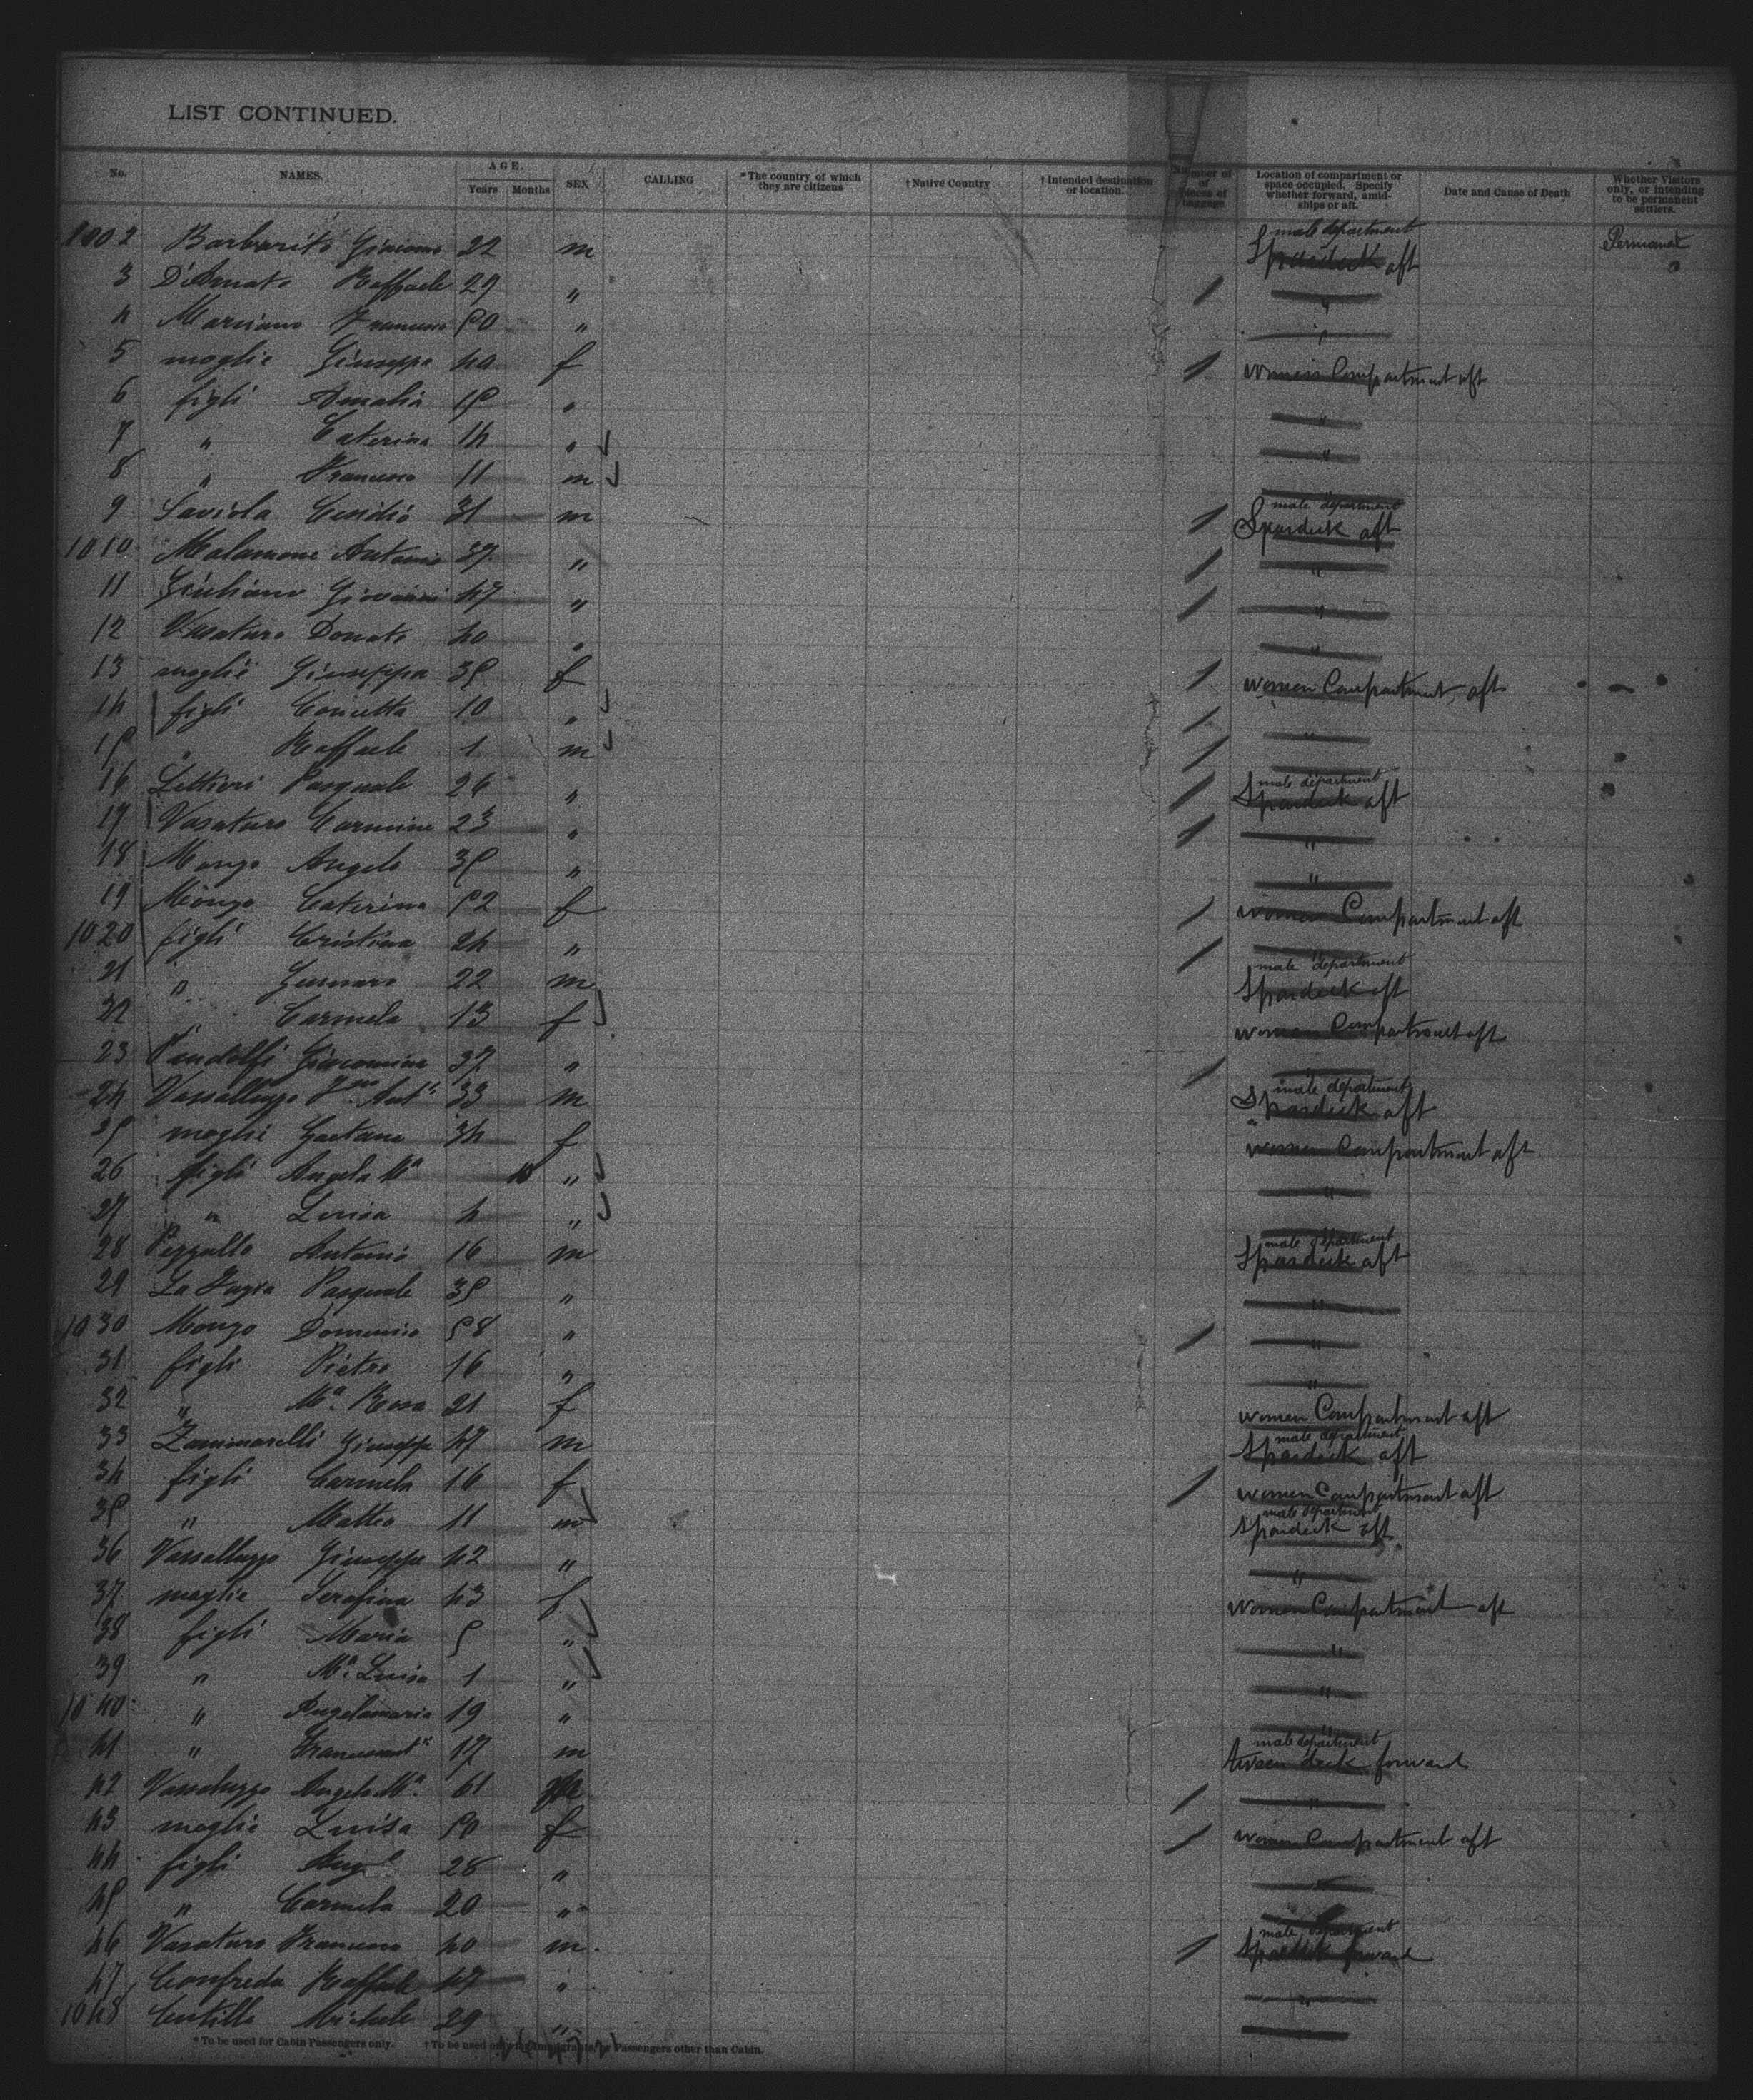 LIST CONTINUED.
No. NAMES. AGE. Years Months SEX CALLING *The country of which they are citizens †Native Country †Intended destination or location. Number of pieces of baggage Location of compartment or space occupied. Specify whether forward, amidships or aft. Date and Cause of Death Whether Visitors only, or intending to be permanent settlers.
1002 Barbarito 22 m male department Spardeck aft Permanent
3 D'Amato Raffaele 29 " / "
4 Marciano Francesco 50 " "
5 moglie Giuseppa 40 f 1 women Compartment aft
6 figli Amalia 15 " "
7 " Caterina 14 " "
8 " Francesco 11 m "
9 Saviola 31 m 1 male department Spardeck aft
1010 Malamone Antonio 37 " / "
11 Giuliano Giovanni 47 " / "
12 Donato 40 " "
13 moglie Giuseppa 35 f 1 women Compartment aft
14 figli Concetta 10 " / "
15 " Raffaele 1 m /
16 Lettieri Pasquale 26 " / male department Spardeck aft
17 Vasaturo Carmine 23 " 1 "
18 Mongo Angelo 35 " "
19 Mongo Caterina 52 f / women Compartment aft
1020 figli Cristina 24 " /
21 " Gennaro 22 m male department Spardeck aft
22 Carmela 13 f women Compartment aft
23 Pandolfi Giacomina 37 " / "
24 Vassalluzzo 33 m male department Spardeck aft
25 moglie Gaetana 34 f women Compartment aft
26 figli Angela Mª 10 " "
27 " Luisa 4 "
28 Pezzullo Antonio 16 m male department Spardeck aft
29 Pasquale 35 " "
1030 Mongo Domenico 58 " / "
31 figli Pietro 16 " "
32 " Mª Rosa 21 f women Compartment aft
33 Zammarelli Giuseppe 47 m male department Spardeck aft
34 figli Carmela 16 f / women Compartment aft
35 " Matteo 11 m male department Spardeck aft
36 Vassalluzzo Giuseppe 42 " "
37 moglie Serafina 43 f women Compartment aft
38 figli Maria 5 " "
39 " Mª Luisa 1 " "
1040 " Angelamaria 19 " "
41 " 17 m male department tween deck forward
42 Vassaluzzo Angelo Mª 61 / "
43 moglie Luisa 50 f / women Compartment aft
44 figli 28 " "
45 " Carmela 20 "
46 Vasaturo Francesco 40 m. 1 male department Spardeck forward
47 Confreda Raffaele 47 " "
1048 Centillo Michele 29 "
*To be used for Cabin Passengers only. †To be used only for Immigrants or Passengers other than Cabin.